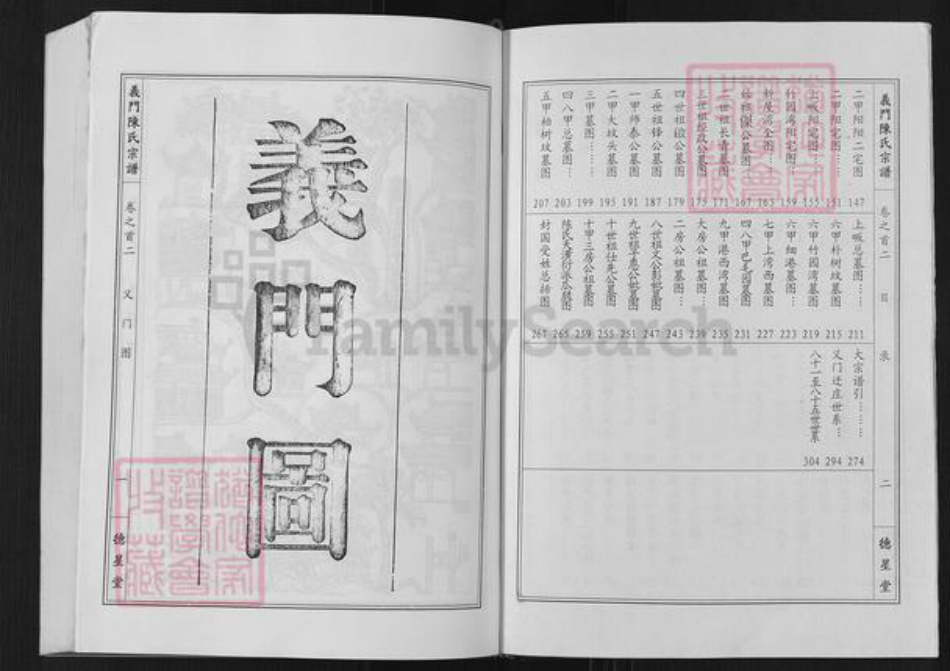 義門陳氏宗譜
卷之首二
目
录
二
德星堂
二甲阳阳二宅图 147
二甲阳宅图… 151
上畈阳宅图… 155
竹园湾阳宅图… 159
全图… 163
始祖公墓图… 167
二世祖长青墓图 171
三世祖公墓图 175
四世祖俊公墓图 179
五世祖铎公墓图 187
一甲师泰公墓图 191
二甲大坟头墓图 195
三甲墓图…… 199
四八甲总墓图… 203
五甲柏树坟墓图 207
上畈总墓图…… 211
六甲朴树坟墓图 215
六甲竹园湾墓图 219
六甲细港墓图… 223
七甲上湾西墓图 227
四八甲巴毛园墓图 231
九甲港西湾墓图 235
大房公祖墓图… 239
二房公祖墓图… 243
八世祖义公彭妣墓图 247
九世祖子忠公妣墓图 251
十世祖仕先公墓图 255
十甲三房公祖墓图 259
陈氏天潢衍派瓜瓞图 265
封国受姓总括图 267
大宗谱引…… 274
义门迁庄世系… 294
八十一至八十五世世系 304
義門圖
義門陳氏宗譜
卷之首二
义门图
一
德星堂
FamilySearch